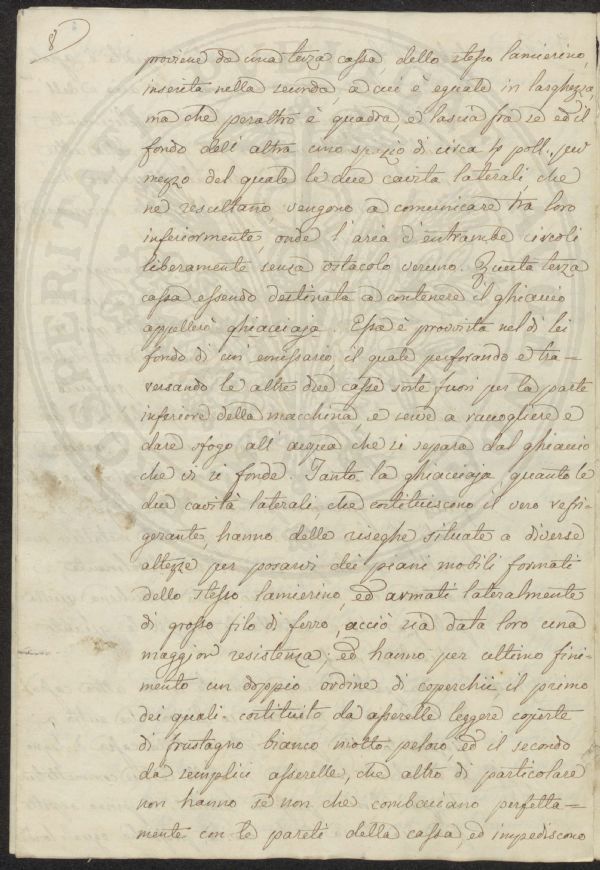 8
proviene da una terza cassa, dello stesso lamierino,
inserita nella seconda, a cui è eguale in larghezza,
ma che peraltro è quadra, e lascia fra se ed il
fondo dell' altra uno spazio di circa 4 poll., per
mezzo del quale le due cavità laterali, che
ne resultano, vengono a comunicare tra loro
inferiormente, onde l' aria d' entrambe circoli
liberamente senza ostacolo veruno. Questa terza
cassa essendo destinata a contenere il ghiaccio
appellerò ghiacciaja. Essa è provvista nel di lei
fondo di un emissario, il quale perforando e tra=
versando le altre due casse sorte fuori per la parte
inferiore della macchina, e serve a raccogliere e
dare sfogo all' acqua che si separa dal ghiaccio
che vi si fonde. Tanto la ghiacciaja, quanto le
due cavità laterali, che costituiscono il vero refri-
gerante, hanno delle riseghe situate a diverse
altezze per posarvi dei piani mobili formati
dello stesso lamierino, ed armati lateralmente
di grosso filo di ferro, acciò sia data loro una
maggior resistenza; ed hanno per ultimo fini-
mento un doppio ordine di coperchii, il primo
dei quali costituito da asserelle leggere coperte
di frustagno bianco molto peloso, ed il secondo
da semplici asserelle, che altro di particolare
non hanno se non che combaciano perfetta=
mente con le pareti della cassa, ed impediscono
PROSPERITATI